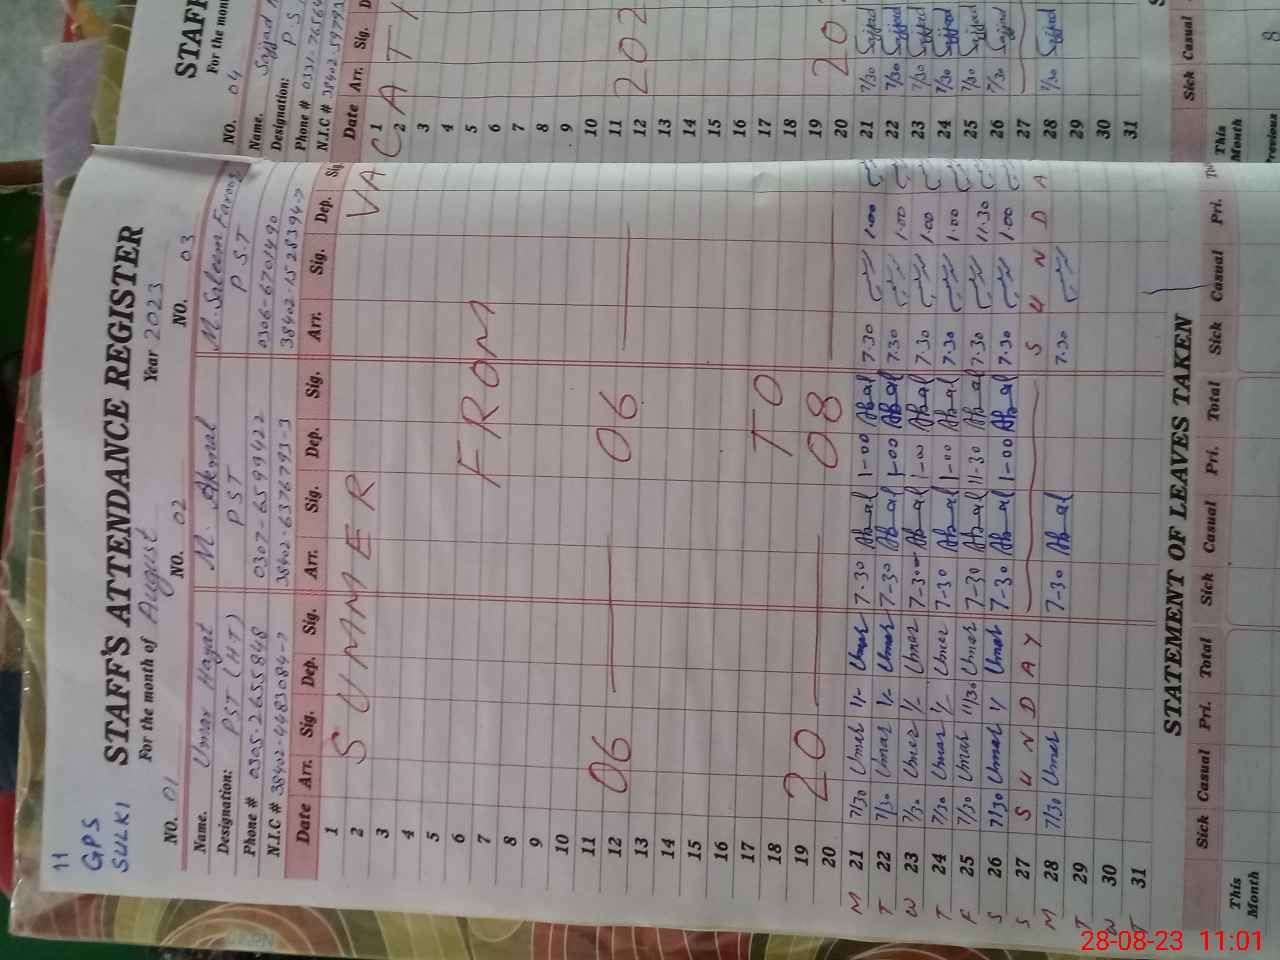 11
GPS
SULKI
STAFF'S ATTENDANCE REGISTER
For the month of August Year 2023
NO. 01 NO. 02 NO. 03
Name. Umar Hayat M. Akmal M. Saleem Farooq
Designation: PST (HT) PST P.S.T
Phone # 0305-2655848 0307-6599422 0306-6701490
N.I.C # 38402-4483084-7 38402-6376793-3 38402-1528394-7
Date Arr. Sig. Dep. Sig. Arr. Sig. Dep. Sig. Arr. Sig. Dep. Sig.
1
2 SUMMER VA
3
4
5
6
7 FROM
8
9
10
11
12 06 — 06 —
13
14
15
16
17
18 TO
19
20 20 — 08 —
M 21 7/30 Umar 1/- Umar 7-30 Akmal 1-00 Akmal 7.30 1.00
T 22 7/30 Umar 1/- Umar 7-30 Akmal 1-00 Akmal 7.30 1.00
W 23 7/30 Umar 1/- Umar 7-30 Akmal 1-00 Akmal 7.30 1.00
T 24 7/30 Umar 1/- Umar 7-30 Akmal 1-00 Akmal 7.30 1.00
F 25 7/30 Umar 11/30 Umar 7-30 Akmal 11-30 Akmal 7.30 11.30
S 26 7/30 Umar 1/ Umar 7-30 Akmal 1-00 Akmal 7.30 1.00
S 27 S U N D A Y S U N D A
M 28 7/30 Umar 7-30 Akmal 7.30
T 29
W 30
T 31
STATEMENT OF LEAVES TAKEN
Sick Casual Pri. Total Sick Casual Pri. Total Sick Casual Pri.
This Month
STAFF
For the mon
NO. 04
Name. Sajjad
Designation: P.S
Phone # 0331-7656
N.I.C # 38402-59793
Date Arr. Sig.
1
2 CATI
3
4
5
6
7
8
9
10
11
12 202
13
14
15
16
17
18
19
20 20
21 7/30 Sajjad
22 7/30 Sajjad
23 7/30 Sajjad
24 7/30 Sajjad
25 7/30 Sajjad
26 7/30 Sajjad
27
28 7/30 Sajjad
29
30
31
Sick Casual
This Month
Previous
8
28-08-23 11:01